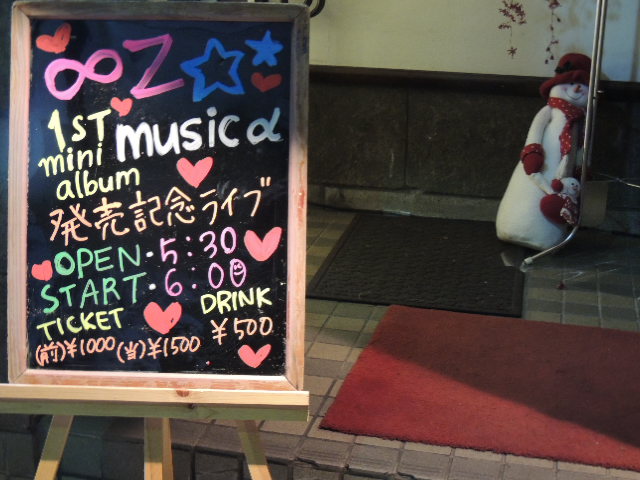 ∞Z☆
1ST mini album
music α
発売記念ライブ
OPEN・5:30
START・6:00
TICKET
(前)¥1000 (当)¥1500
DRINK
¥500